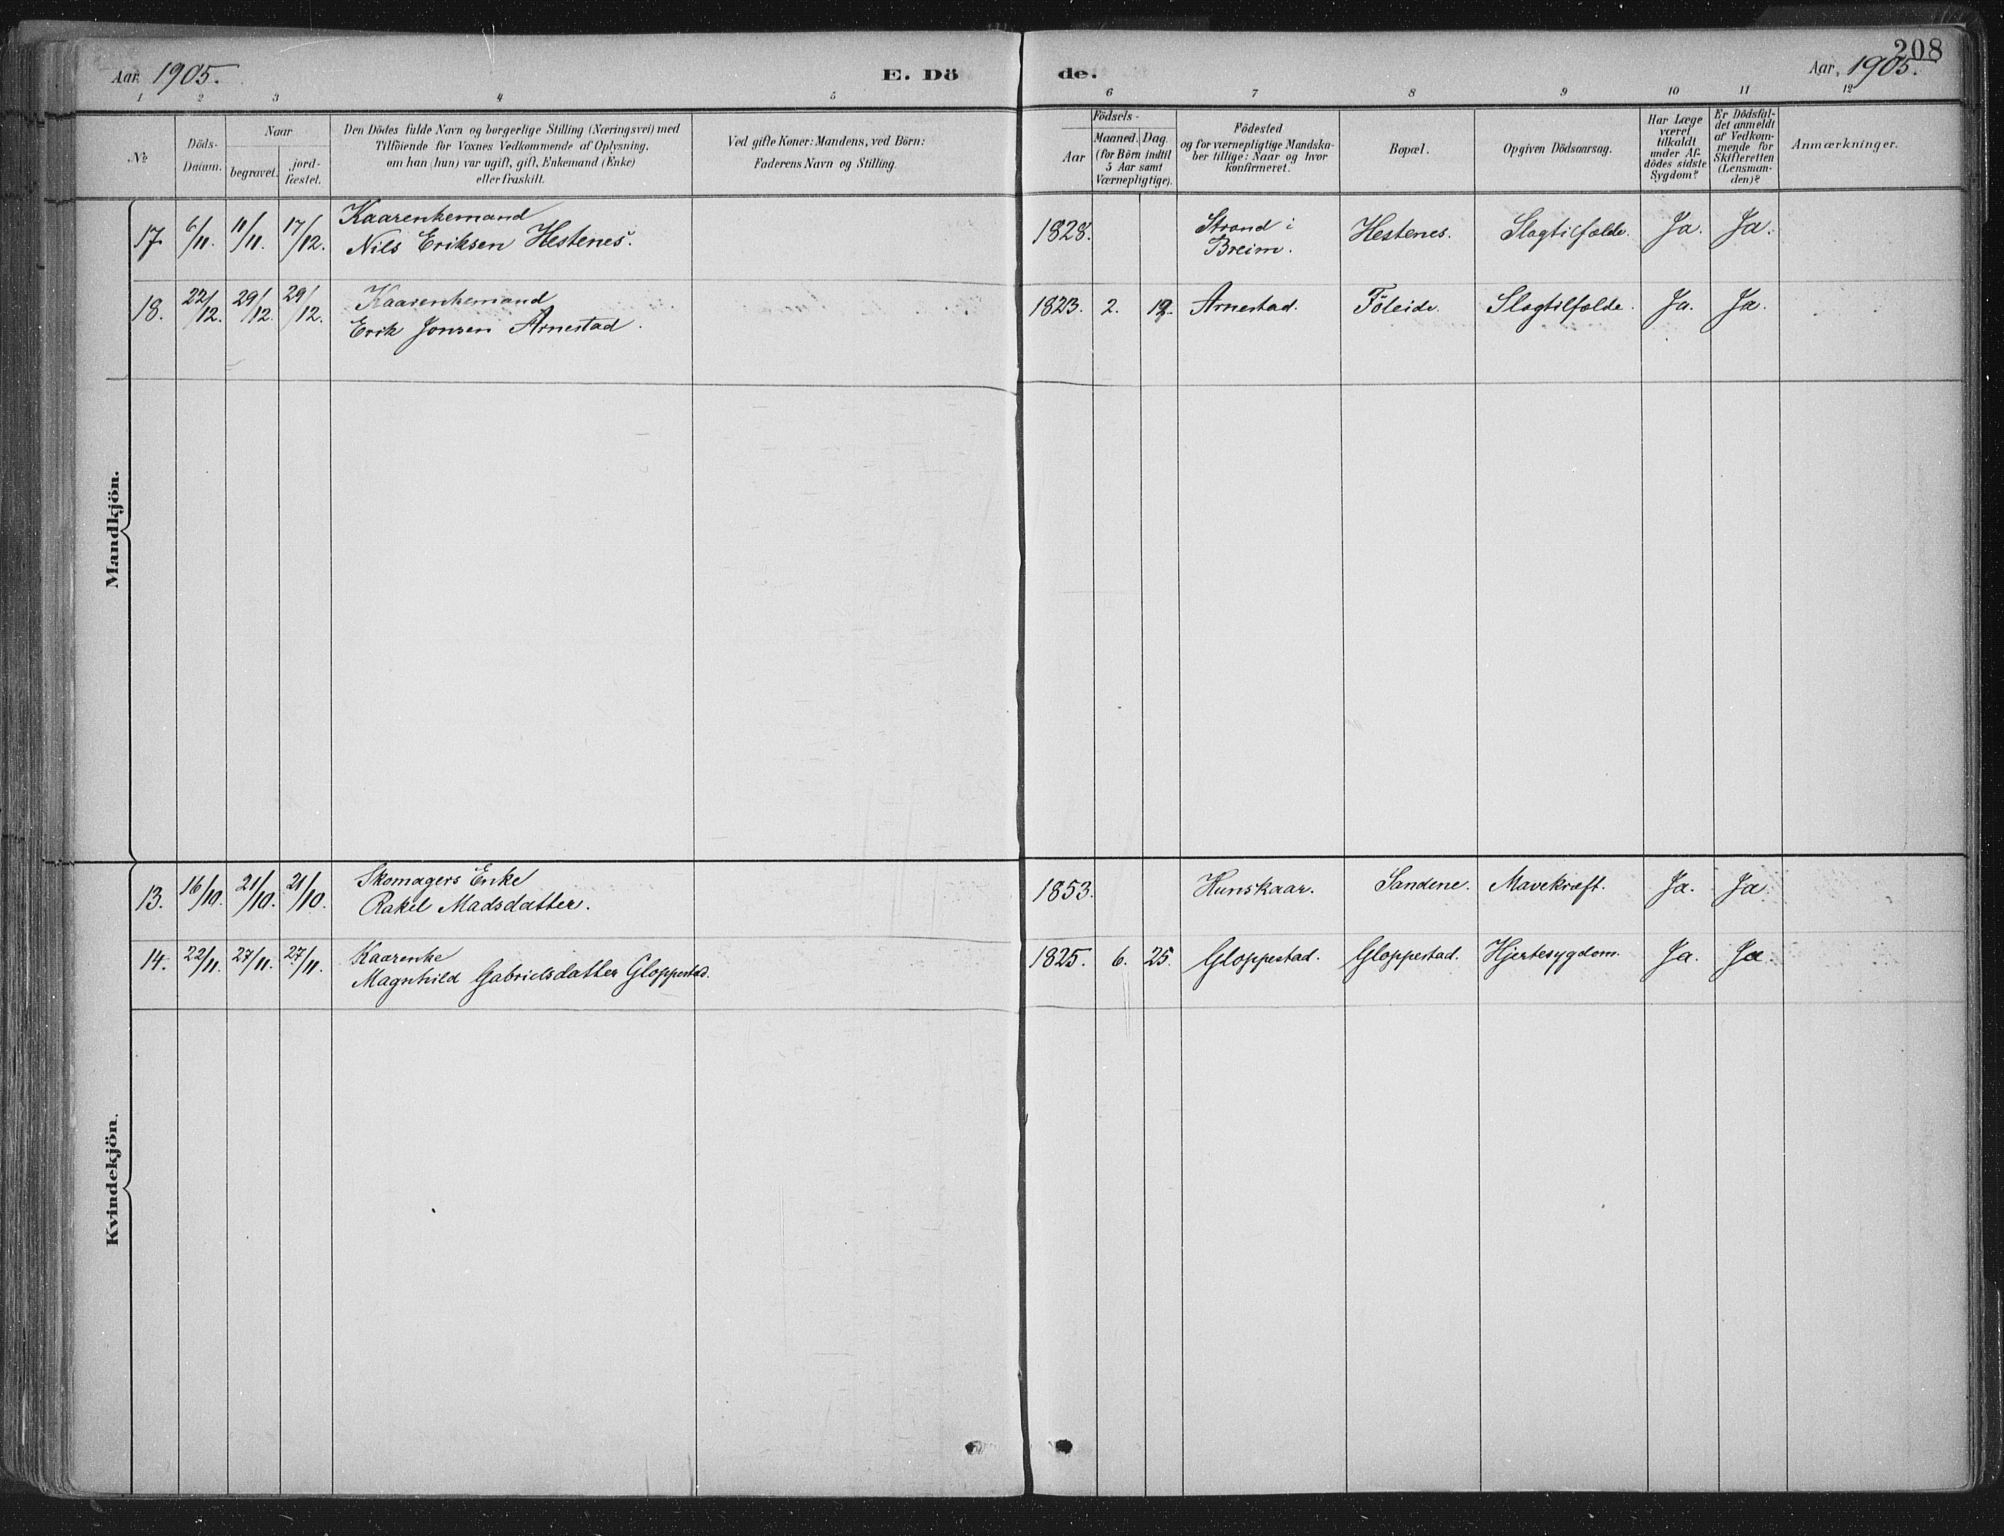 208
Aar. 1905.
E. Dö
de.
Aar. 1905.
1 2 3 4 5 6 7 8 9 10 11 12
№
Döds-
Datum.
Naar
begravet.
jord-
fæstet.
Den Dödes fulde Navn og borgerlige Stilling (Næringsvei) med
Tilföiende for Voxnes Vedkommende af Oplysning,
om han (hun) var ugift, gift, Enkemand (Enke)
eller fraskilt.
Ved gifte Koner: Mandens, ved Börn:
Faderens Navn og Stilling.
Födsels-
Aar
Maaned. Dag.
(for Börn indtil
5 Aar samt
Værnepligtige).
Födested
og for værnepligtige Mandska-
ber tillige: Naar og hvor
konfirmeret.
Bopæl.
Opgiven Dödsaarsag.
Har Læge
været
tilkaldt
under Af-
dödes sidste
Sygdom?
Er Dödsfal-
det anmeldt
af Vedkom-
mende for
Skifteretten
(Lensman-
den)?
Anmærkninger.
Mandkjön.
17. 6/11. 11/11. 17/12. Kaarenkemand
Nils Eriksen Hestenes.
1828. Strand i
Breim. Hestenes. Slagtilfælde. Ja. Ja.
18. 22/12. 29/12. 29/12. Kaarenkemand
Erik Jonsen Arnestad.
1823. 2. Arnestad. Föleide. Slagtilfælde. Ja. Ja.
Kvindekjön.
13. 16/10. 21/10. 21/10. Skomagers Enke
Rakel Madsdatter.
1853. Hunskaar. Sandene. Mavekræft. Ja. Ja.
14. 22/11. 27/11. 27/11. Kaarenke
Magnhild Gabrielsdatter Gloppestad.
1825. 6. 25. Gloppestad. Gloppestad. Hjertesygdom. Ja. Ja.